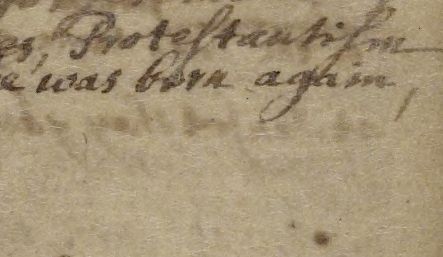 es, Proteſtantiſm
e was born again,